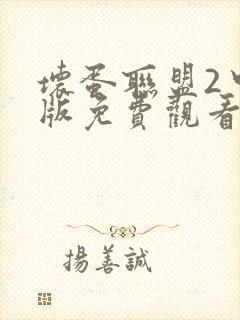 壞蛋聯盟2中
版免費觀看
揚善誠